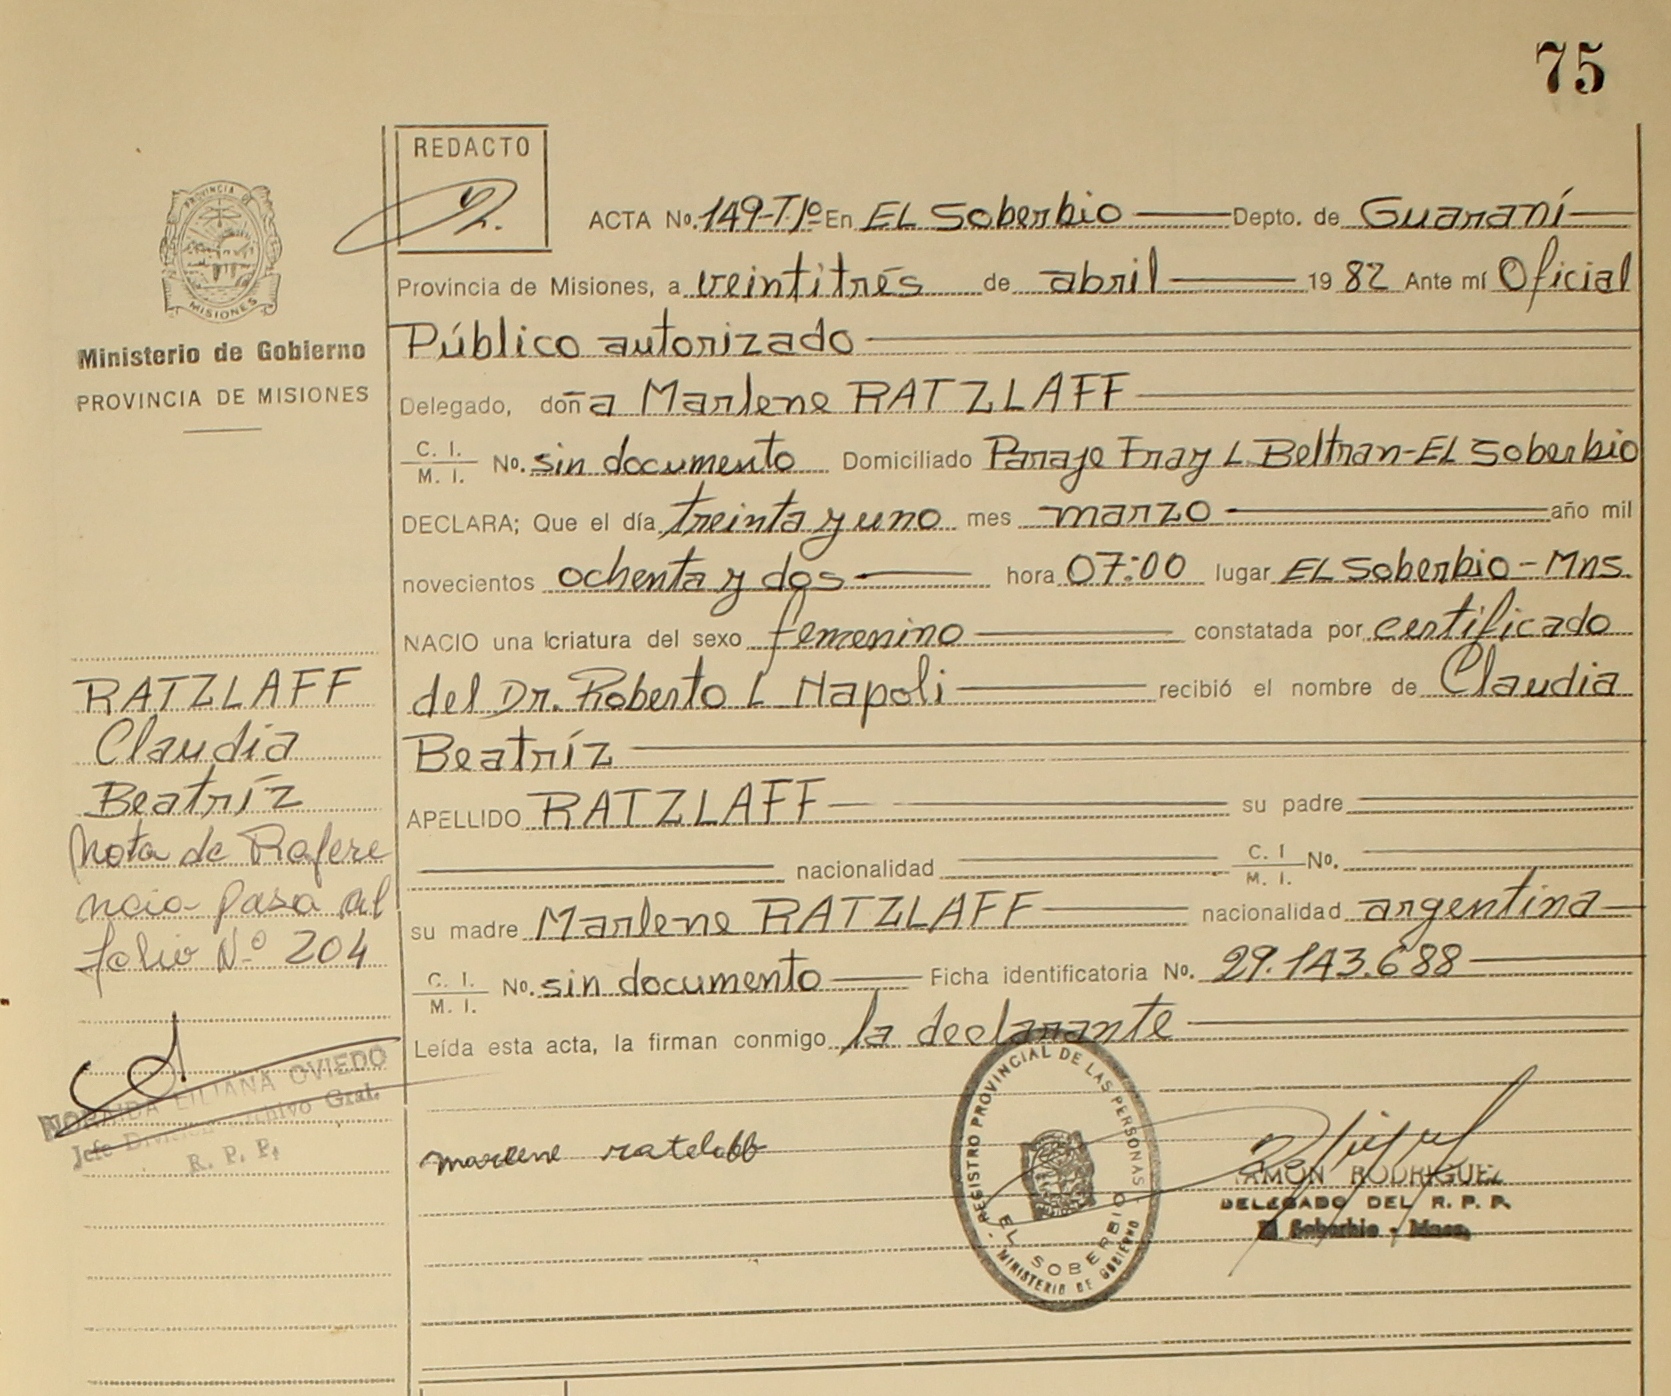 75
REDACTO
2.
PROVINCIA DE
MISIONES
Ministerio de Gobierno
PROVINCIA DE MISIONES
ACTA No. 149-Tº1º En EL Soberbio Depto. de Guaraní
Provincia de Misiones, a veintitrés de abril 1982 Ante mí Oficial
Público autorizado
Delegado, doña Marlene RATZLAFF
C. I. M. I. No. sin documento Domiciliado Paraje Fray L. Beltran-EL Soberbio
DECLARA; Que el día treinta y uno mes marzo año mil
novecientos ochenta y dos hora 07:00 lugar EL Soberbio - Mns.
NACIO una criatura del sexo femenino constatada por certificado
del Dr. Roberto L Napoli recibió el nombre de Claudia
Beatríz
APELLIDO RATZLAFF su padre
nacionalidad C. I M. I. No.
su madre Marlene RATZLAFF nacionalidad argentina
C. I. M. I. No. sin documento Ficha identificatoria No. 29.143.688
Leída esta acta, la firman conmigo la declarante
RATZLAFF
Claudia
Beatríz
Nota de Refere
ncia pasa al
folio Nº 204
LILIANA OVIEDO
Jefe División Archivo Gral.
R. P. P.
marlene ratzlaff
REGISTRO PROVINCIAL DE LAS PERSONAS
EL SOBERBIO
- MINISTERIO DE GOBIERNO
RAMON RODRIGUEZ
DELEGADO DEL R. P. P.
El Soberbio - Mnes.